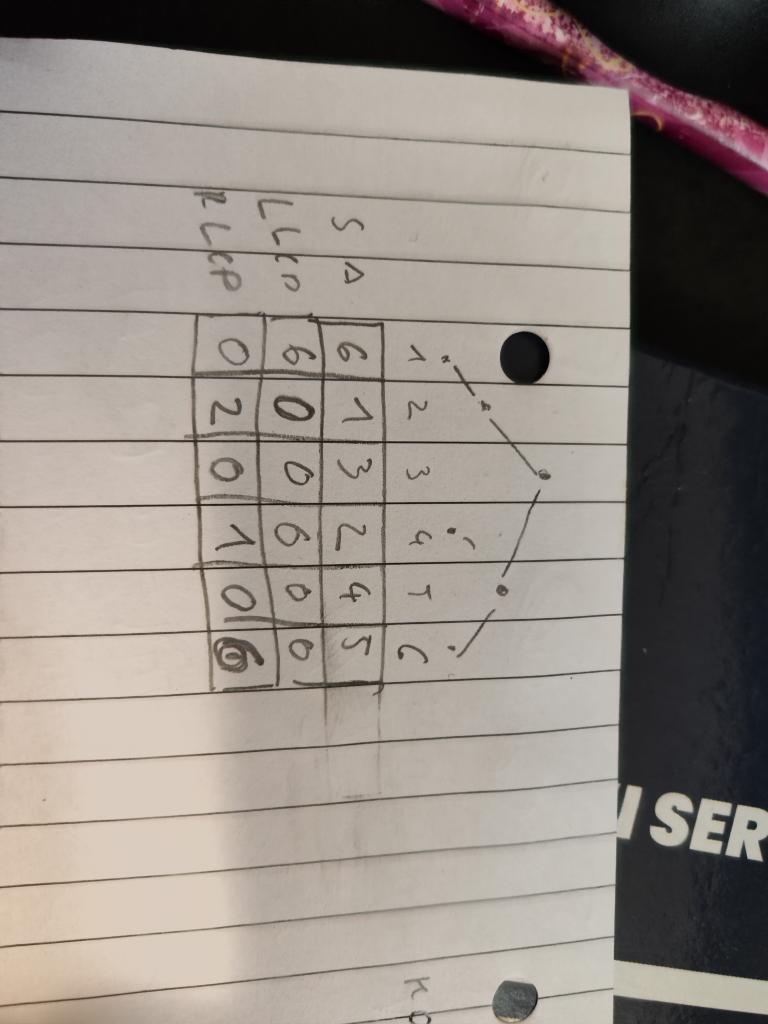 1 2 3 4 5 6
SA 6 1 3 2 4 5
LLCP 6 0 0 6 0 0
RLCP 0 2 0 1 0 6
SER